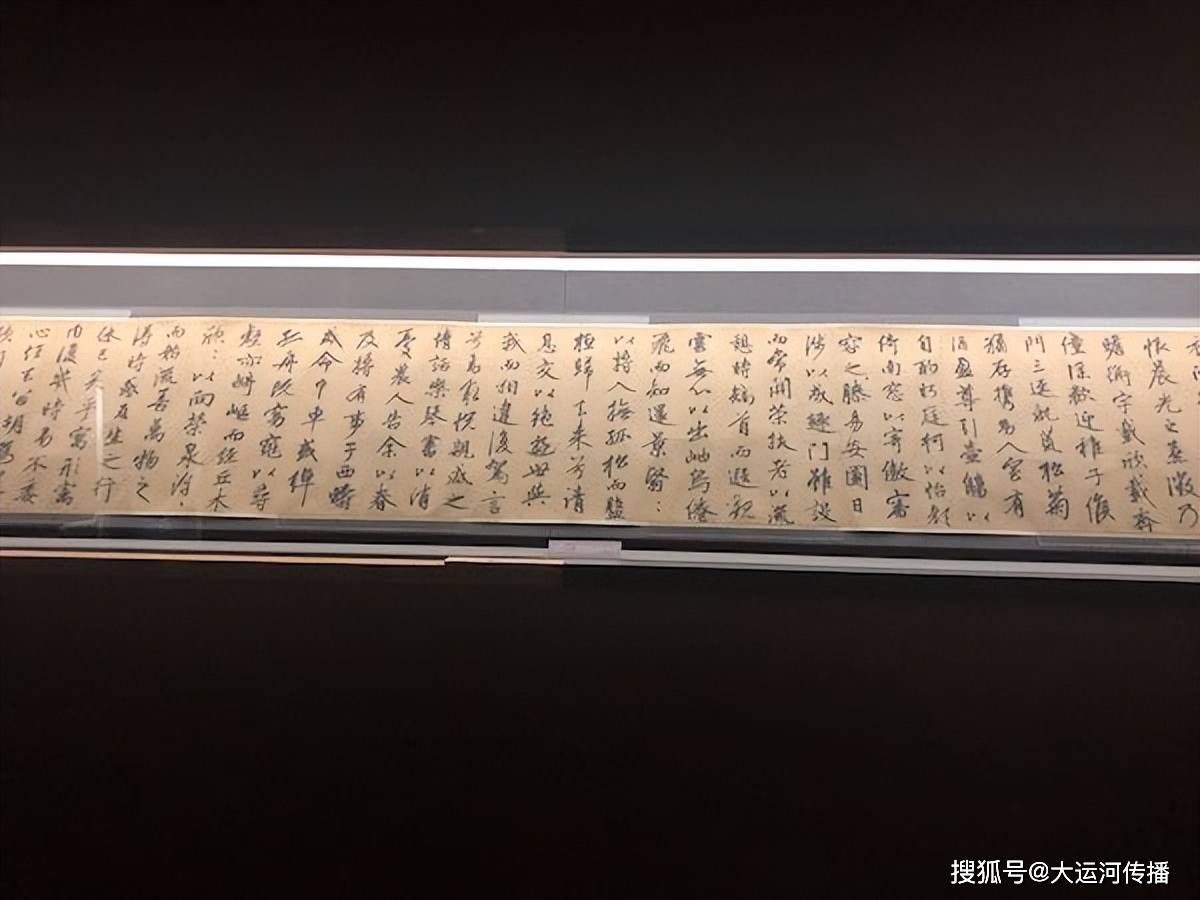 恨晨光之熹微乃
瞻衡宇載欣載奔
僮僕歡迎稚子候
門三逕就荒松菊
猶存携幼入室有
酒盈尊引壺觴以
自酌眄庭柯以怡顏
倚南窓以寄傲審
容之膝易安園日
涉以成趣門雖設
而常關策扶老以流
憩時矯首而遐觀
雲無心以出岫鳥倦
飛而知還景翳:
以將入撫孤松而盤
桓歸去来兮請
息交以絶遊世與
我而相違復駕言
兮焉求悦親戚之
情話樂琴書以消
憂農人告余以春
及將有事于西疇
或命巾車或棹
孤舟既窈窕以尋
壑亦崎嶇而經丘木
欣:以向榮泉涓:
而始流善萬物之
得時感吾生之行
休已矣乎寓形宇
内復幾時曷不委
心任去留胡爲
搜狐号@大运河传播